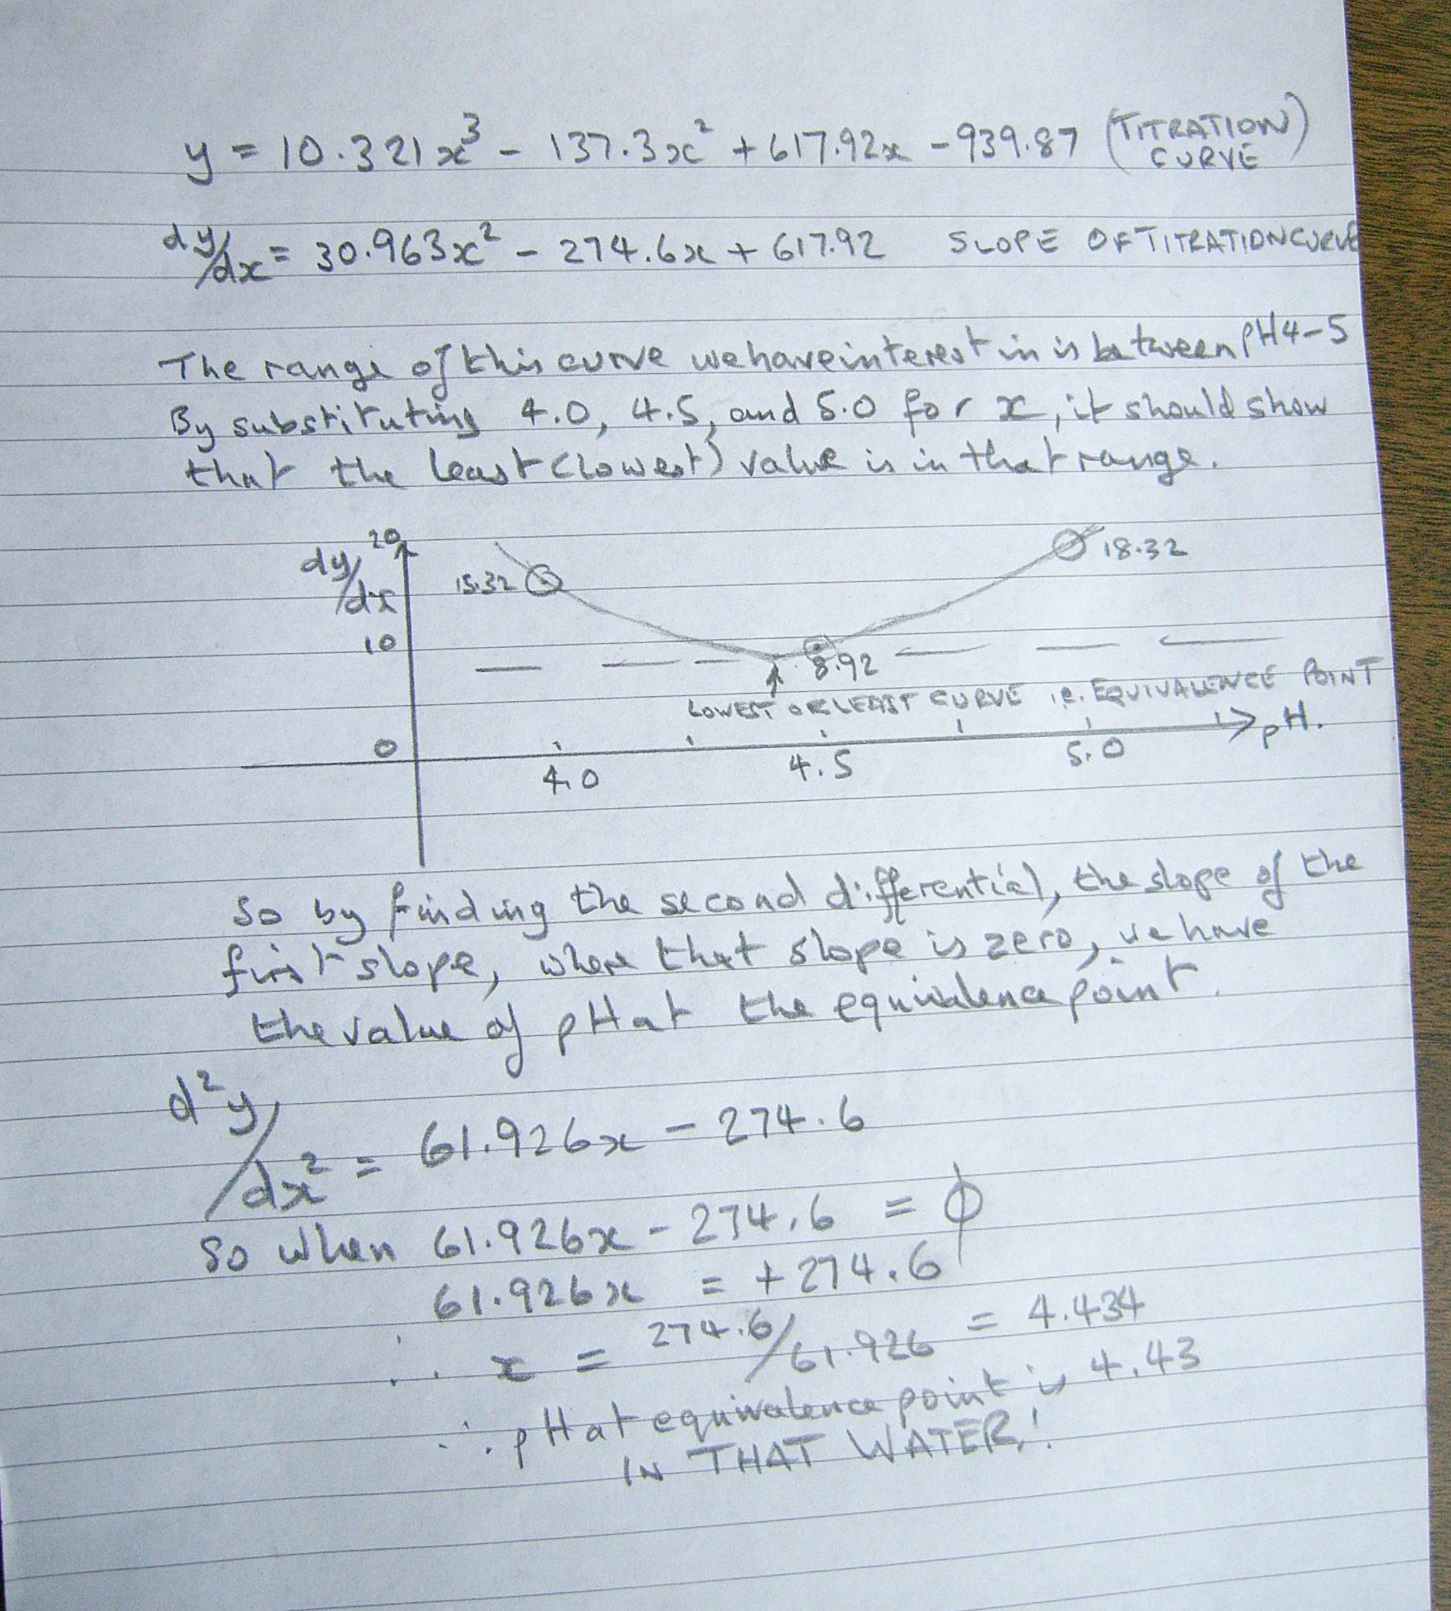 y = 10.321x³ - 137.3x² + 617.92x - 939.87 (TITRATION CURVE)
dy/dx = 30.963x² - 274.6x + 617.92 SLOPE OF TITRATION CURVE
The range of this curve we have interest in is between pH4-5
By substituting 4.0, 4.5, and 5.0 for x, it should show
that the least (lowest) value is in that range.
dy/dx
20
10
0
15.32
18.32
8.92
LOWEST OR LEAST CURVE i.e. EQUIVALENCE POINT
4.0 4.5 5.0 pH.
So by finding the second differential, the slope of the
first slope, where that slope is zero, we have
the value of pH at the equivalence point.
d²y/dx² = 61.926x - 274.6
So when 61.926x - 274.6 = ϕ
61.926x = +274.6
∴ x = 274.6/61.926 = 4.434
∴ pH at equivalence point is 4.43
IN THAT WATER!